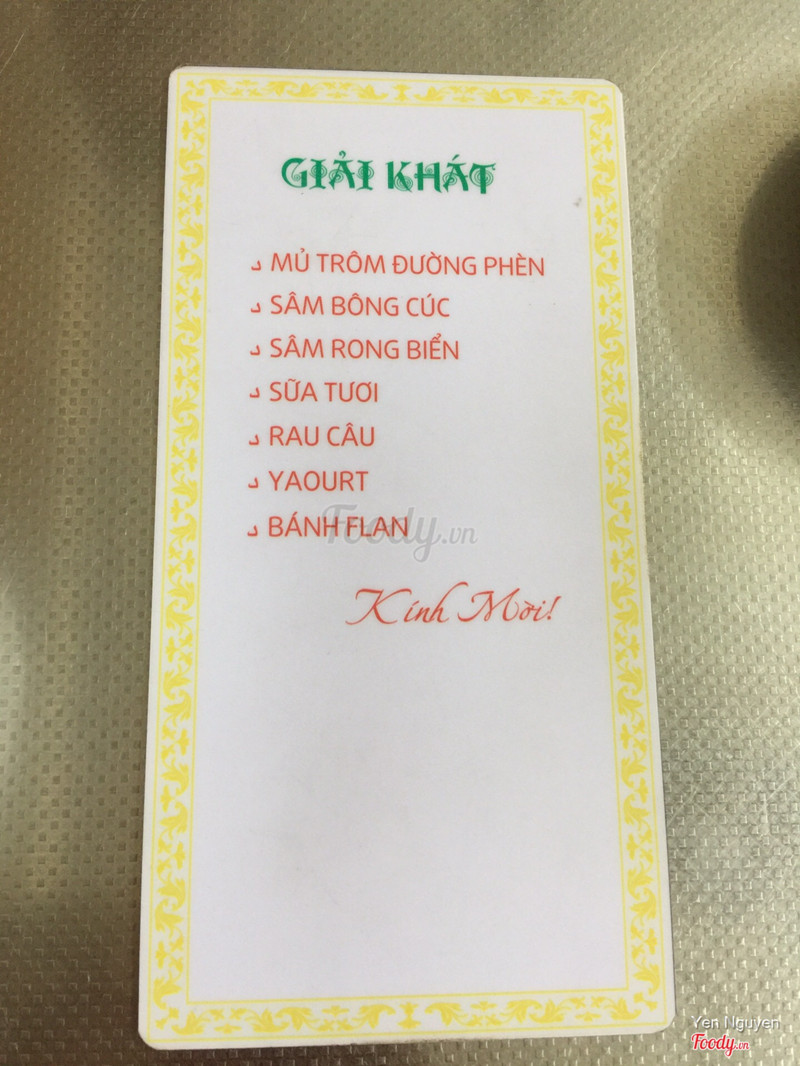 GIẢI KHÁT
MỦ TRÔM ĐƯỜNG PHÈN
SÂM BÔNG CÚC
SÂM RONG BIỂN
SỮA TƯƠI
RAU CÂU
YAOURT
BÁNH FLAN
Foody.vn
Kính Mời!
Yen Nguyen
Foody.vn